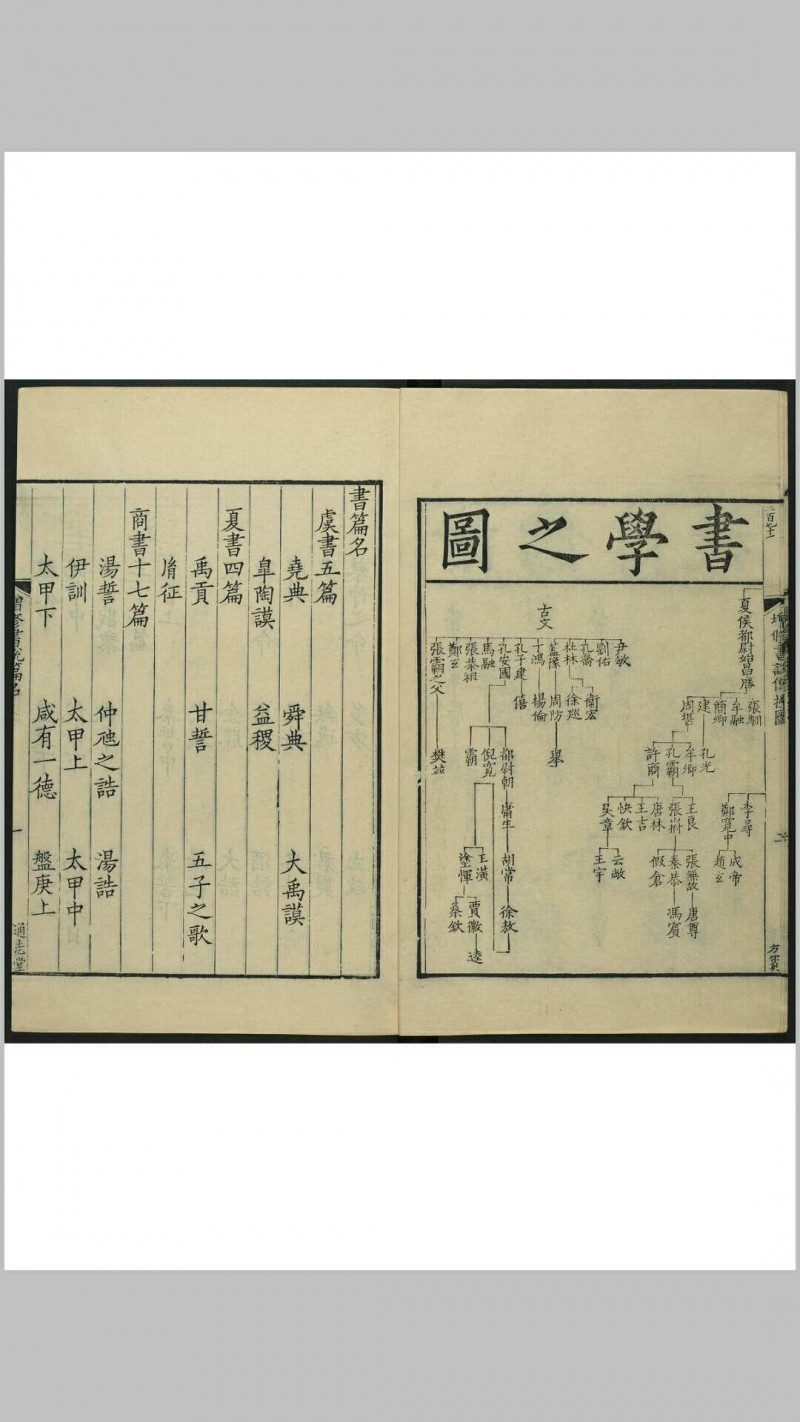 書學之圖
夏侯都尉始昌勝
張馴
牟融
簡卿
建
孔光
周堪
牟卿
孔霸
許商
李尋
鄭寬中
成帝
趙玄
王良
張無故
唐尊
秦恭
馮賓
假倉
唐林
王吉
快欽
吳章
云敞
王宇
古文
尹敏
劉佑
孔喬
衛宏
杜林
徐巡
蓋豫
周防
舉
丁鴻
楊倫
孔子建
僖
孔安國
馬融
張恭祖
鄭玄
張霸之父
樊並
都尉朝
庸生
胡常
徐敖
倪寬
霸
王潢
塗惲
賈徽
逵
桑欽
書篇名
虞書五篇
堯典 舜典 大禹謨
皐陶謨 益稷
夏書四篇
禹貢 甘誓 五子之歌
胤征
商書十七篇
湯誓 仲虺之誥 湯誥
伊訓 太甲上 太甲中
太甲下 咸有一德 盤庚上
增修書說篇名
一
通志堂